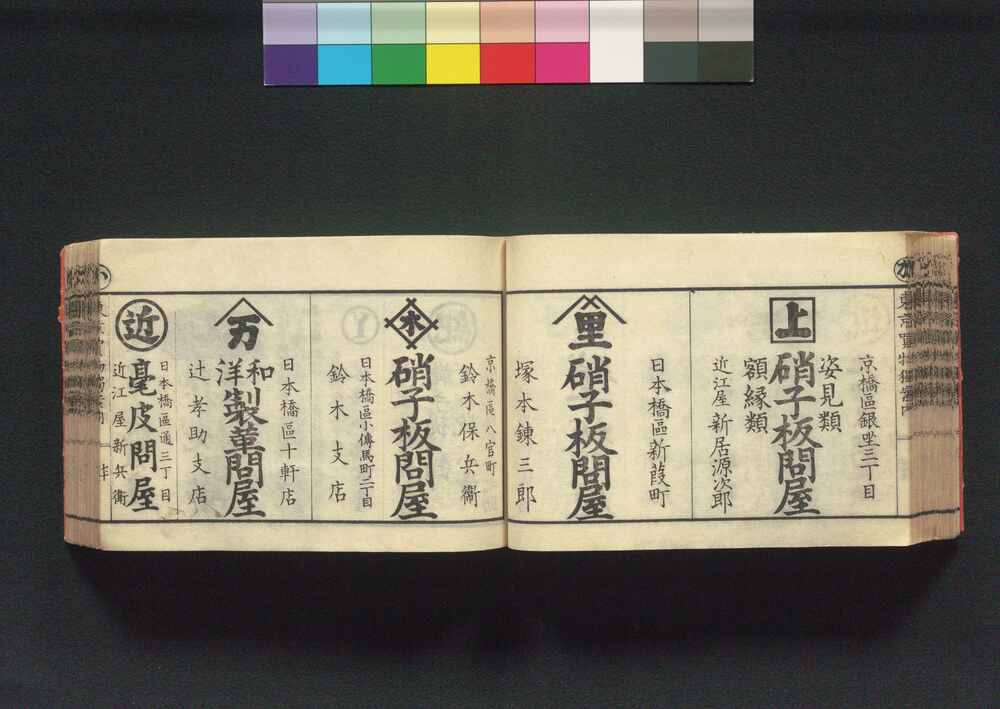 東京買物獨案内
京橋區銀坐三丁目
姿見類
上
硝子板問屋
額縁類
近江屋 新居源次郎
日本橋區新葭町
里
硝子板問屋
塚本錬三郎
京橋區八官町
鈴木保兵衞
木
硝子板問屋
日本橋區小傳馬町二丁目
鈴木支店
日本橋區十軒店
万
和洋製革問屋
辻孝助支店
日本橋區通三丁目
近
毫皮問屋
近江屋新兵衞